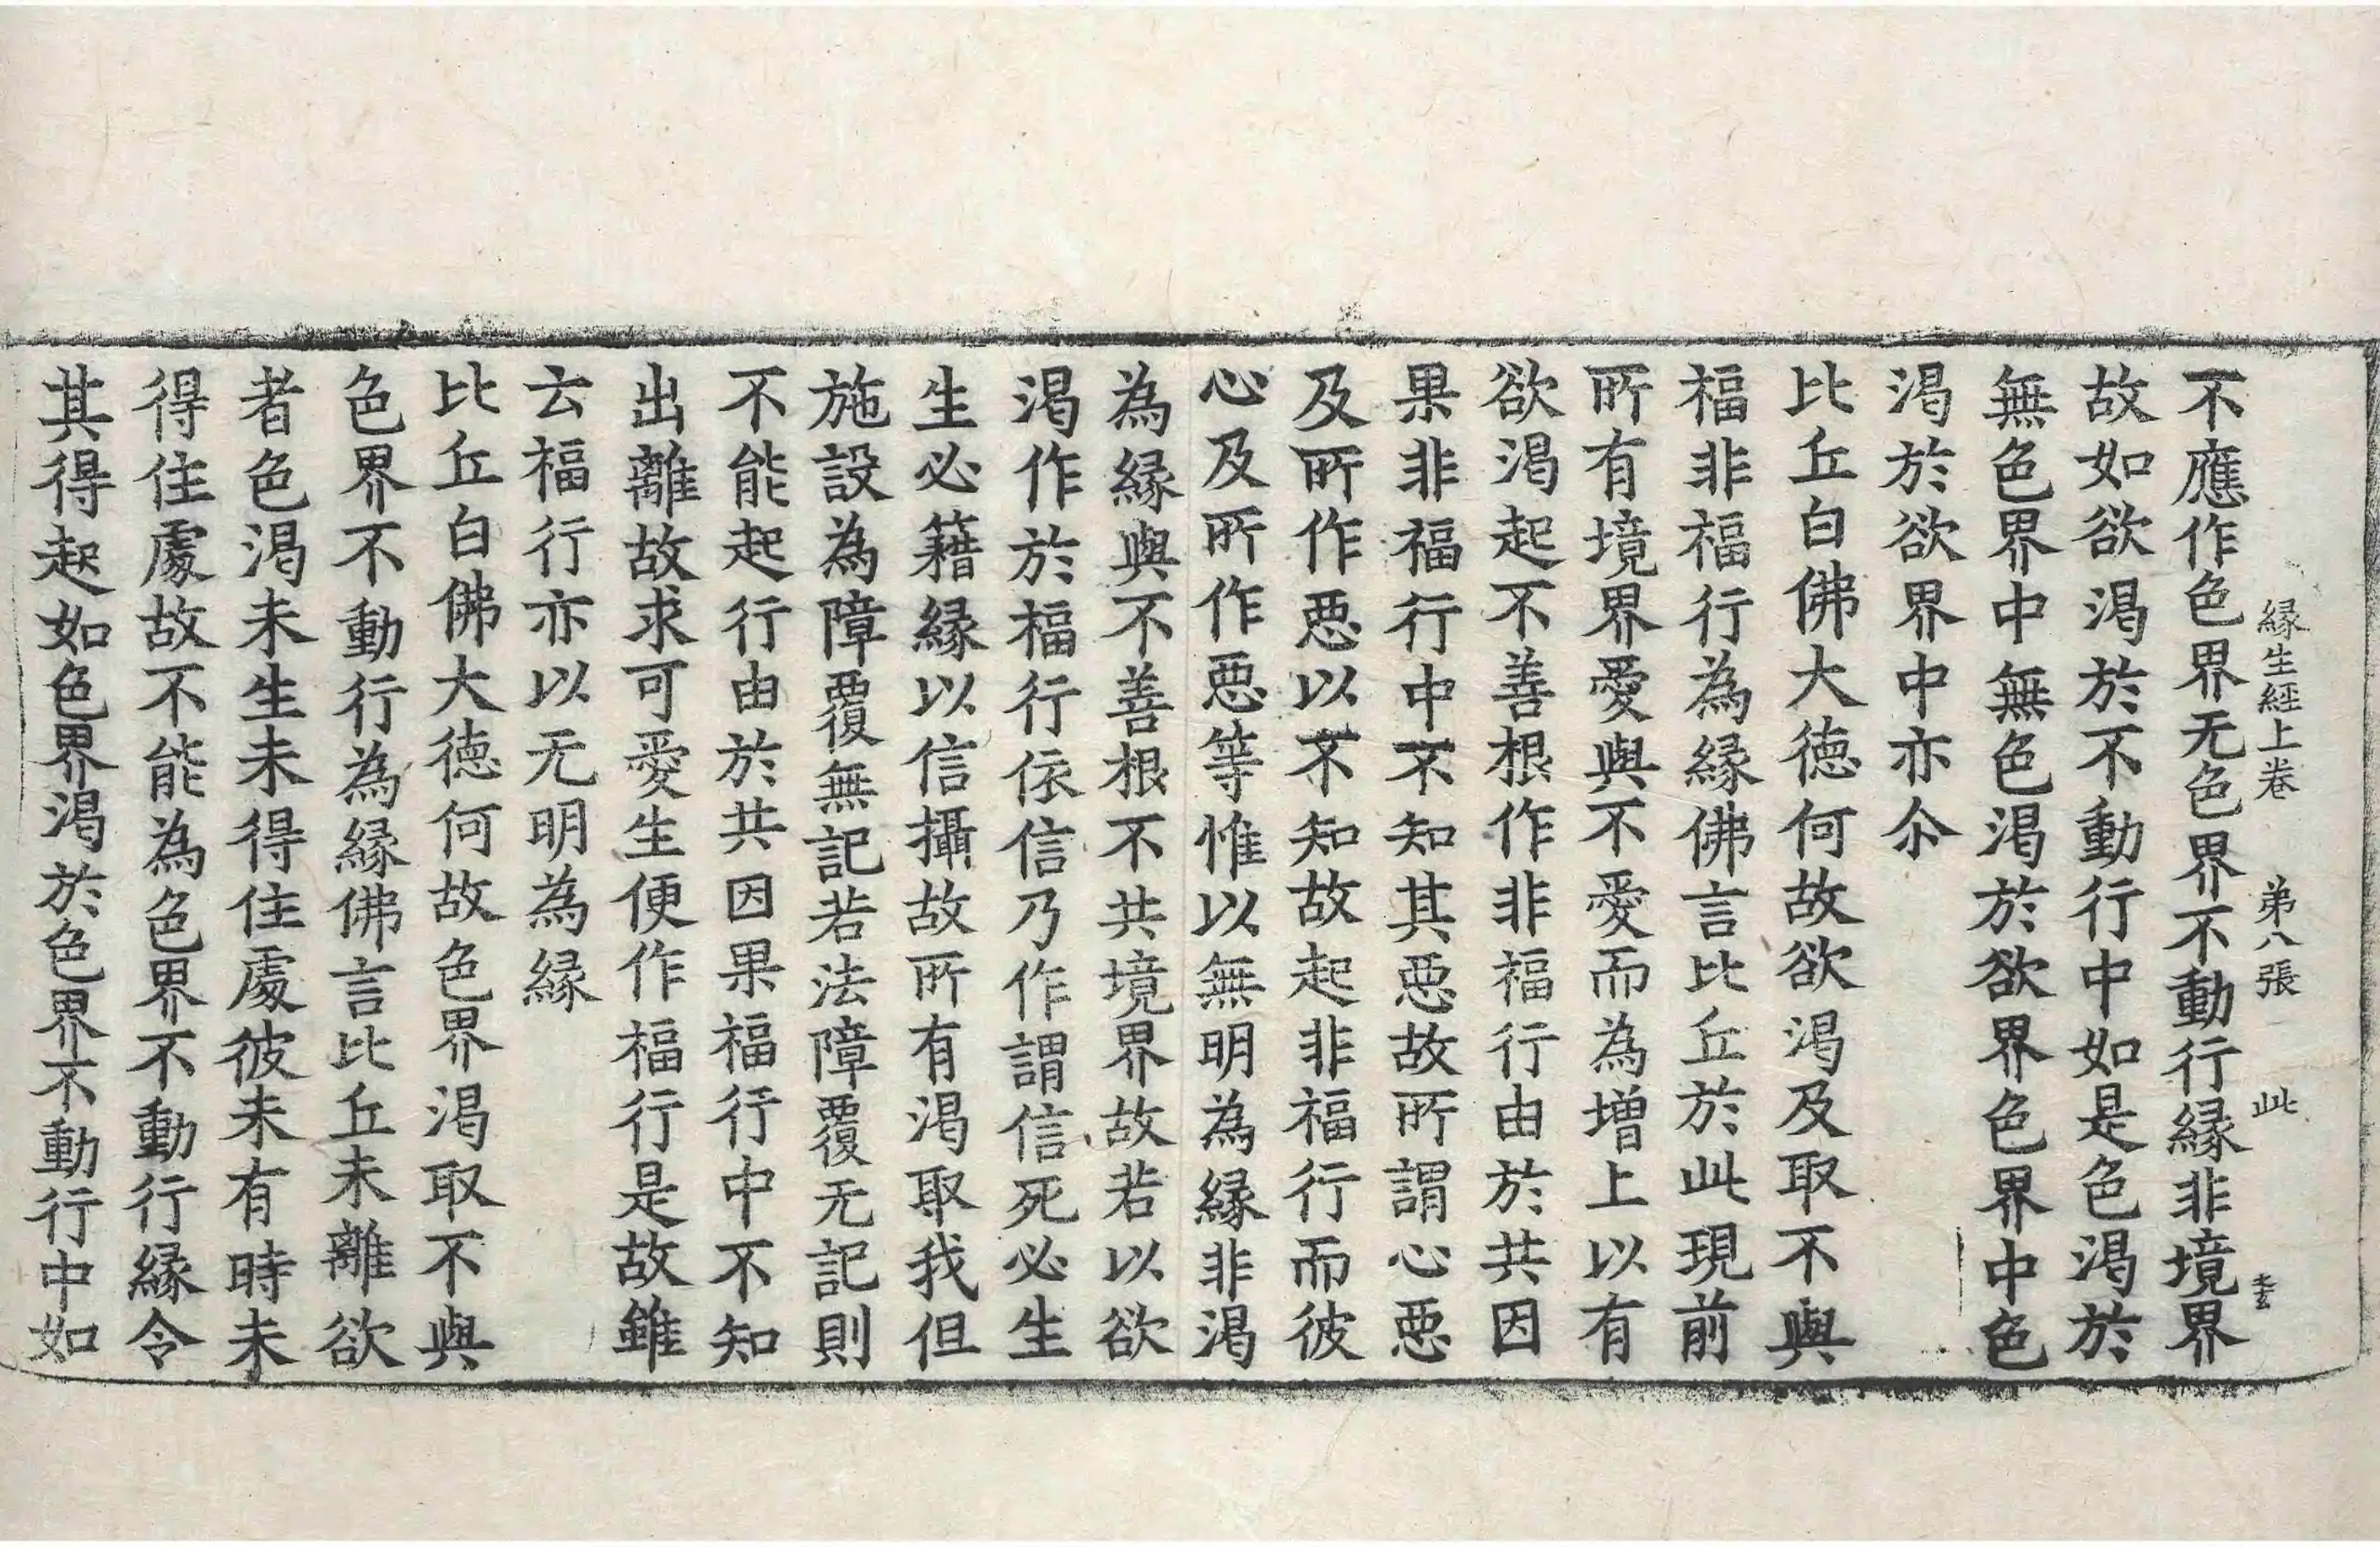 緣生經上卷 弟八張 此
不應作色界无色界不動行緣非境界
故如欲渴於不動行中如是色渴於
無色界中無色渴於欲界色界中色
渴於欲界中亦尒
比丘白佛大德何故欲渴及取不與
福非福行為緣佛言比丘於此現前
所有境界愛與不愛而為增上以有
欲渴起不善根作非福行由於共因
果非福行中不知其惡故所謂心惡
及所作惡以不知故起非福行而彼
心及所作惡等惟以無明為緣非渴
為緣與不善根不共境界故若以欲
渴作於福行依信乃作謂信死必生
生必籍緣以信攝故所有渴取我但
施設為障覆無記若法障覆无記則
不能起行由於共因果福行中不知
出離故求可愛生便作福行是故雖
云福行亦以无明為緣
比丘白佛大德何故色界渴取不與
色界不動行為緣佛言比丘未離欲
者色渴未生未得住處彼未有時未
得住處故不能為色界不動行緣令
其得起如色界渴於色界不動行中如